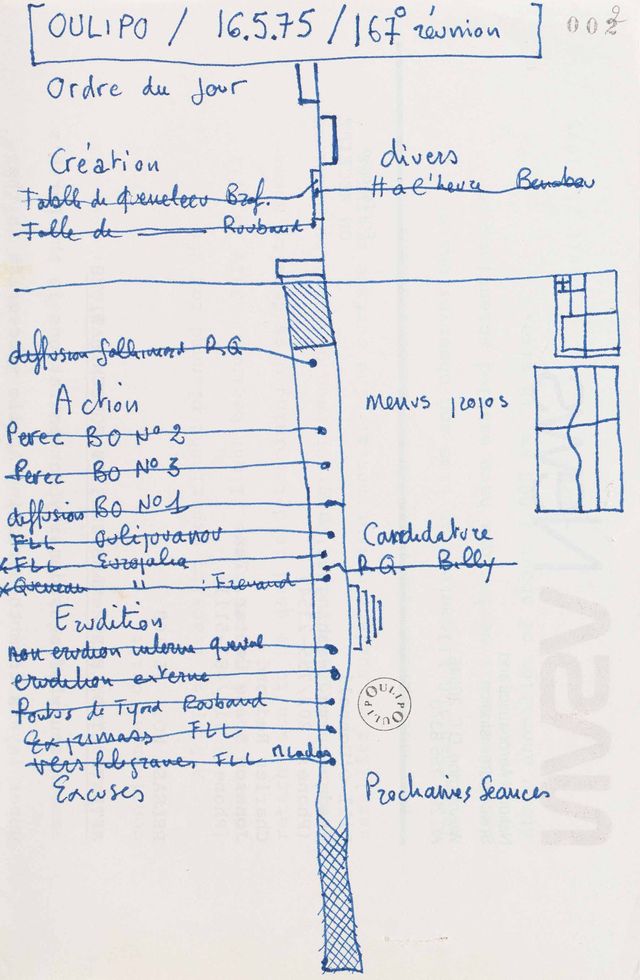 OULIPO / 16.5.75 / 167° réunion
002
9
Ordre du Jour
Création
divers
Table de queneleev Braf.
H à l'heure Benabou
Talle de ——— Roubaud
diffusion Gallimard R.Q
Action
menus propos
Perec BO N° 2
Perec BO N° 3
diffusion BO N° 1
FLL oulijouanou
Candidature
FLL Europalia
R.Q. Billy
x Queneau " : Frenaud
Erudition
non erudion interne queval
erudition externe
Pontus de Tyard Roubaud
OULIPO OULIPO
FLL
vers filigranes FLL
Excuses
Prochaines Séances